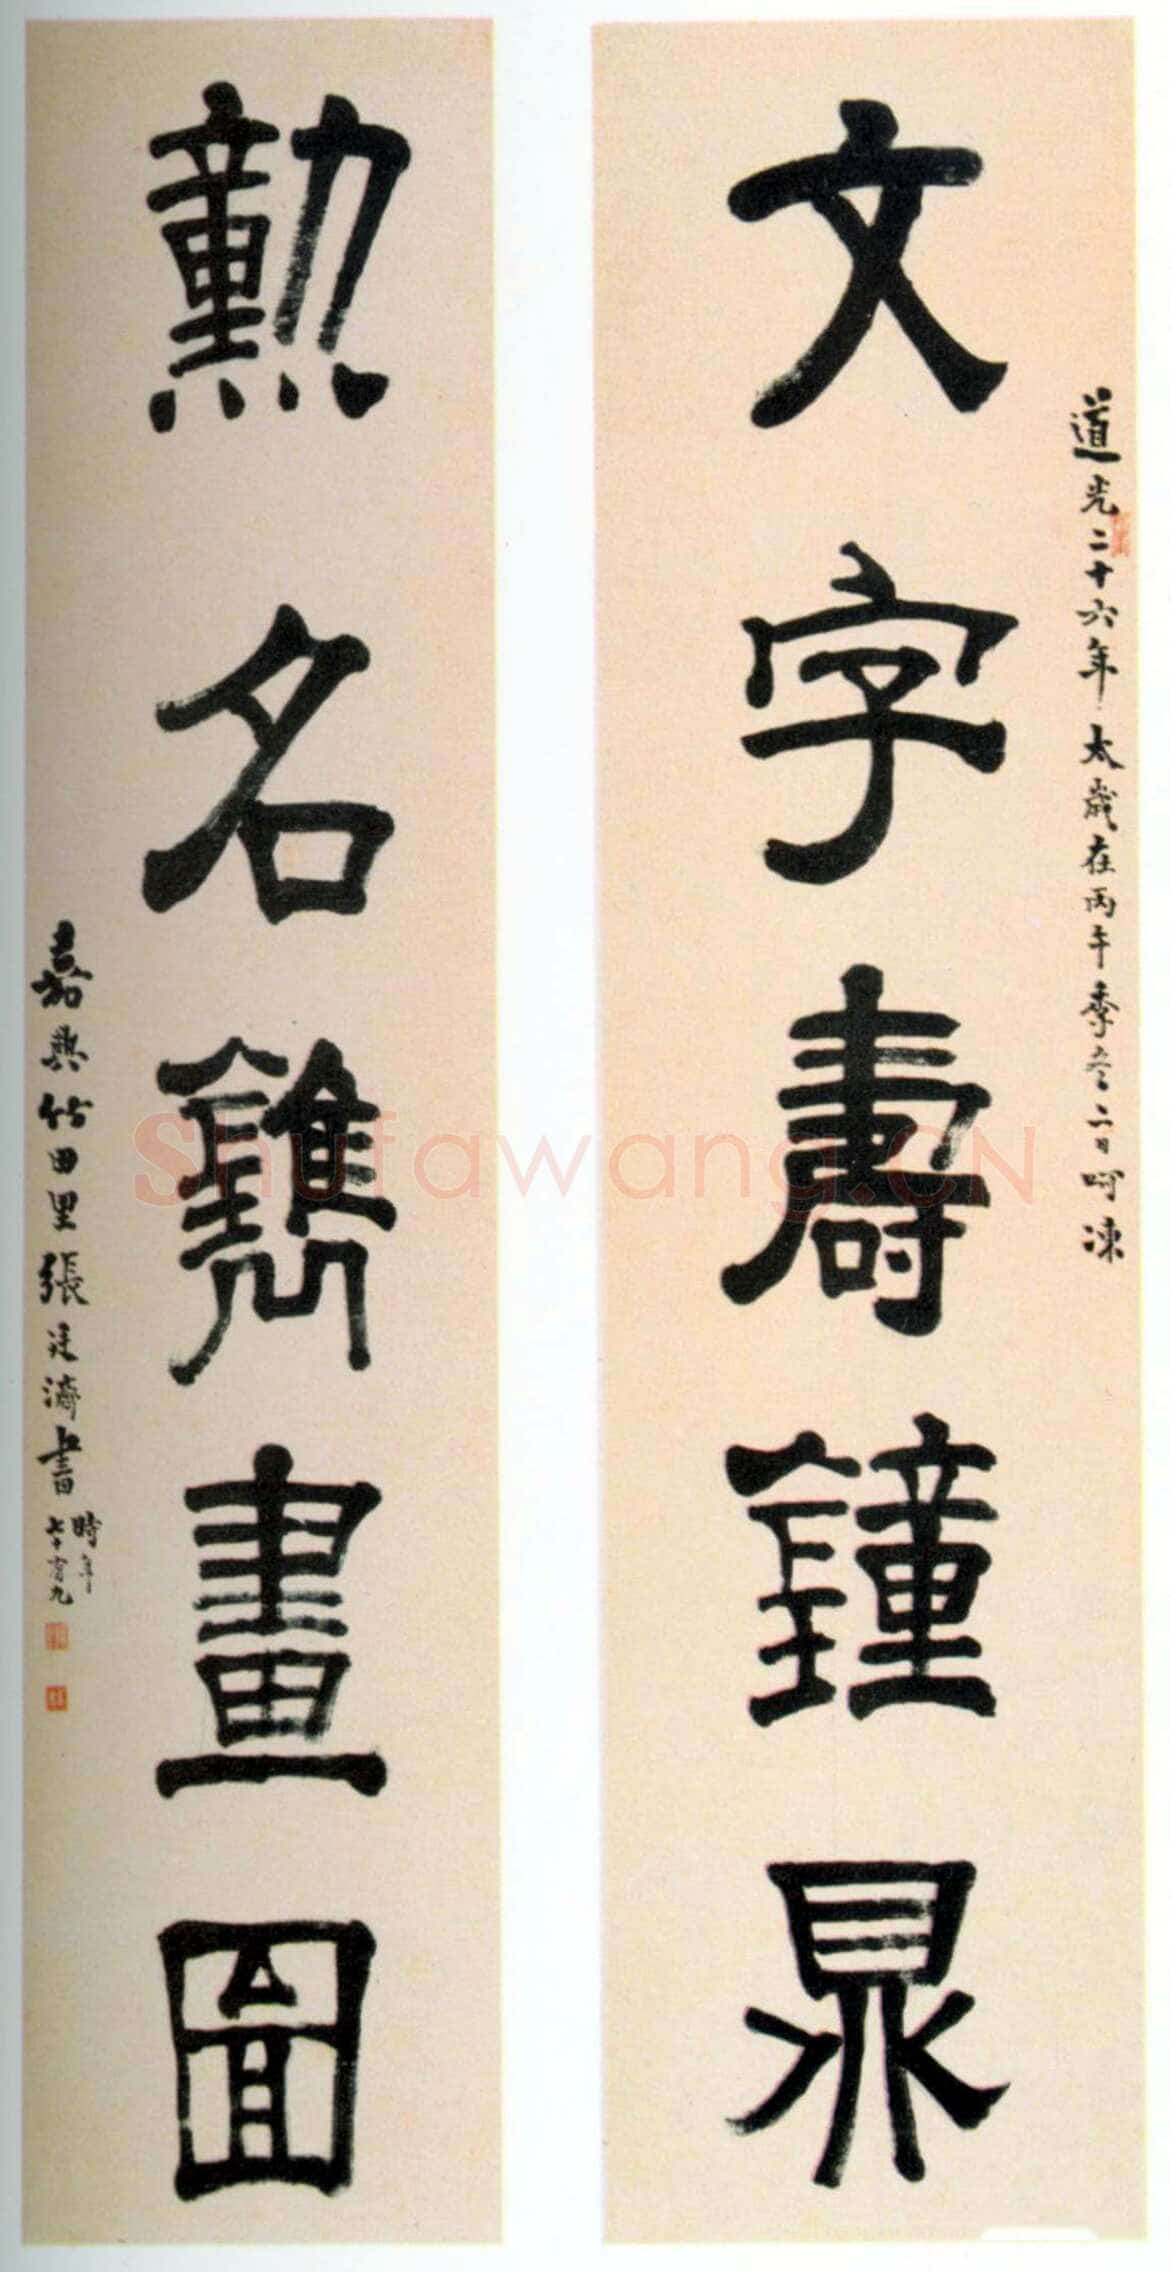 道光二十六年太歲在丙午季冬二日呵凍
文字壽鐘鼎
勲名鐫畫圖
嘉興竹田里張廷濟書
時年
七十有九
Shufawang.CN